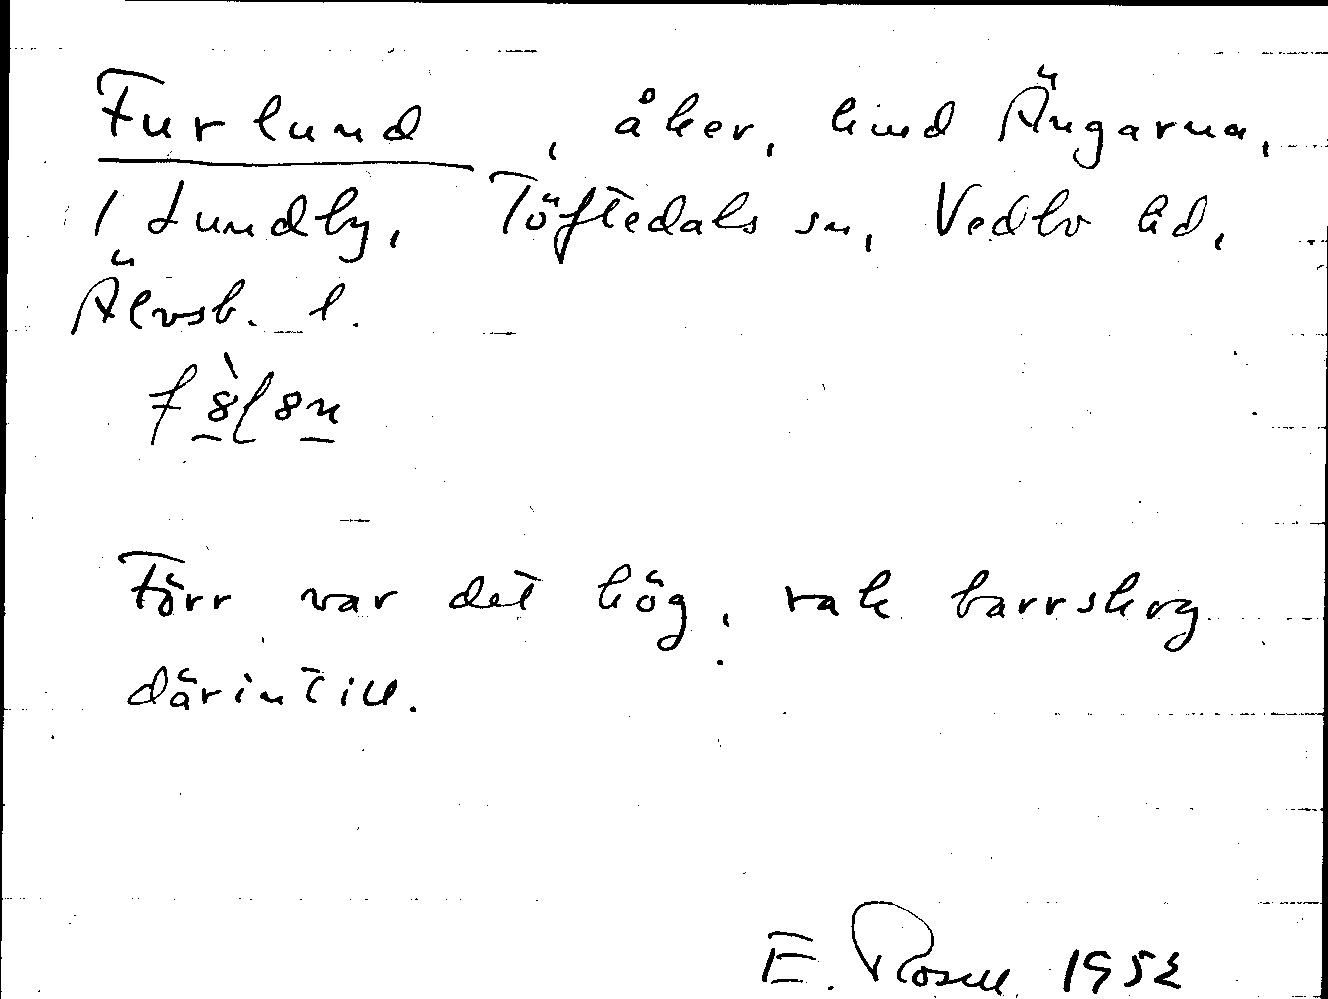 Furlund, åker, kind Ängarna,
1 Lundby, Töftedals sn, Vedbo hd,
Älvsb. l.
Förr var det hög, rak barrskog
därintill.
E. Rosell 1952